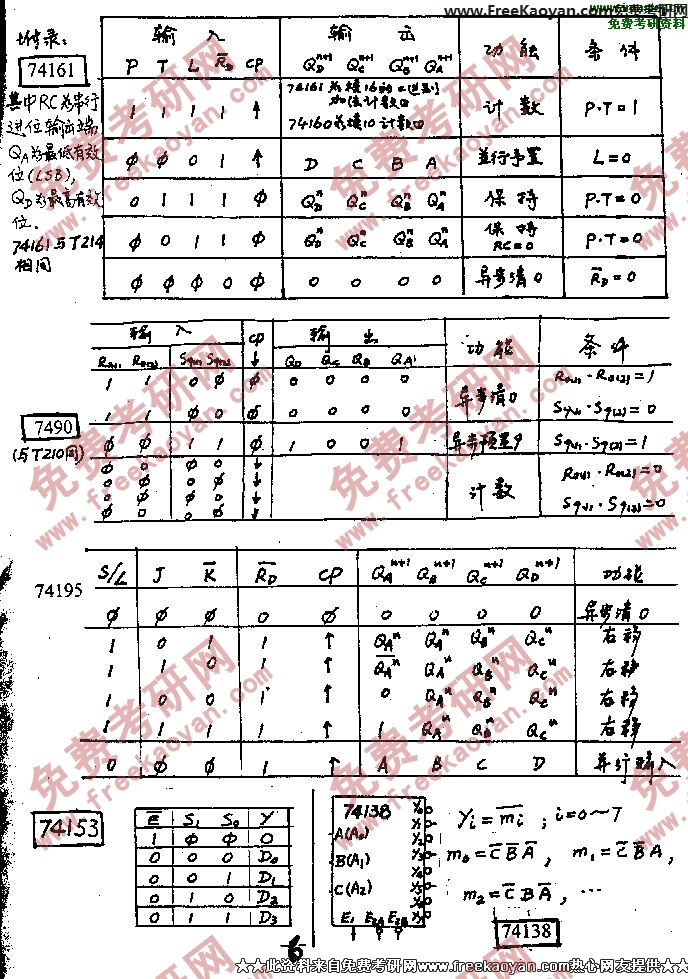 www.FreeKaoyan.com
免费考研网
免费考研资料
附录：
74161
其中RC为串行
进位输出端，
QA为最低有效
位(LSB),
QD为最高有效
位.
74161与T214
相同
输 入 输 出 功 能 条 件
P T L R̄D CP QDⁿ⁺¹ QCⁿ⁺¹ QBⁿ⁺¹ QAⁿ⁺¹
1 1 1 1 ↑ 74161为模16的 加法计数 74160为模10计数 计 数 P·T=1
φ φ 0 1 ↑ D C B A 并行予置 L=0
0 1 1 1 φ QDⁿ QCⁿ QBⁿ QAⁿ 保 持 P·T=0
φ 0 1 1 φ QDⁿ QCⁿ QBⁿ QAⁿ 保 持 RC=0 P·T=0
φ φ φ 0 φ 0 0 0 0 异步清0 R̄D=0
7490
(与T210同)
输 入 CP 输 出 功 能 条 件
R0(1) R0(2) S9(1) S9(2) ↓ QD QC QB QA
1 1 0 φ φ 0 0 0 0 异步清0 R0(1)·R0(2)=1
1 1 φ 0 φ 0 0 0 0 S9(1)·S9(2)=0
φ φ 1 1 φ 1 0 0 1 异步预置9 S9(1)·S9(2)=1
φ 0 φ 0 ↓ 计 数 R0(1)·R0(2)=0
0 φ 0 φ ↓ S9(1)·S9(2)=0
0 φ φ 0 ↓
φ 0 0 φ ↓
74195
S/L J K̄ R̄D CP QAⁿ⁺¹ QBⁿ⁺¹ QCⁿ⁺¹ QDⁿ⁺¹ 功能
φ φ φ 0 φ 0 0 0 0 异步清0
1 0 1 1 ↑ QAⁿ QAⁿ QBⁿ QCⁿ 右移
1 1 0 1 ↑ Q̄Aⁿ QAⁿ QBⁿ QCⁿ 右移
1 0 0 1 ↑ 0 QAⁿ QBⁿ QCⁿ 右移
1 1 1 1 ↑ 1 QAⁿ QBⁿ QCⁿ 右移
0 φ φ 1 ↑ A B C D 并行输入
74153
Ē S1 S0 Y
1 φ φ 0
0 0 0 D0
0 0 1 D1
0 1 0 D2
0 1 1 D3
74138
A(A0)
B(A1)
C(A2)
E1 E2A E2B
Y0
Y1
Y2
Y3
Y4
Y5
Y6
Y7
Yi=m̄i ; i=0~7
m0=C̄B̄Ā, m1=C̄B̄A,
m2=C̄BĀ, ···
74138
6
★★此资料来自免费考研网www.freekaoyan.com热心网友提供★★